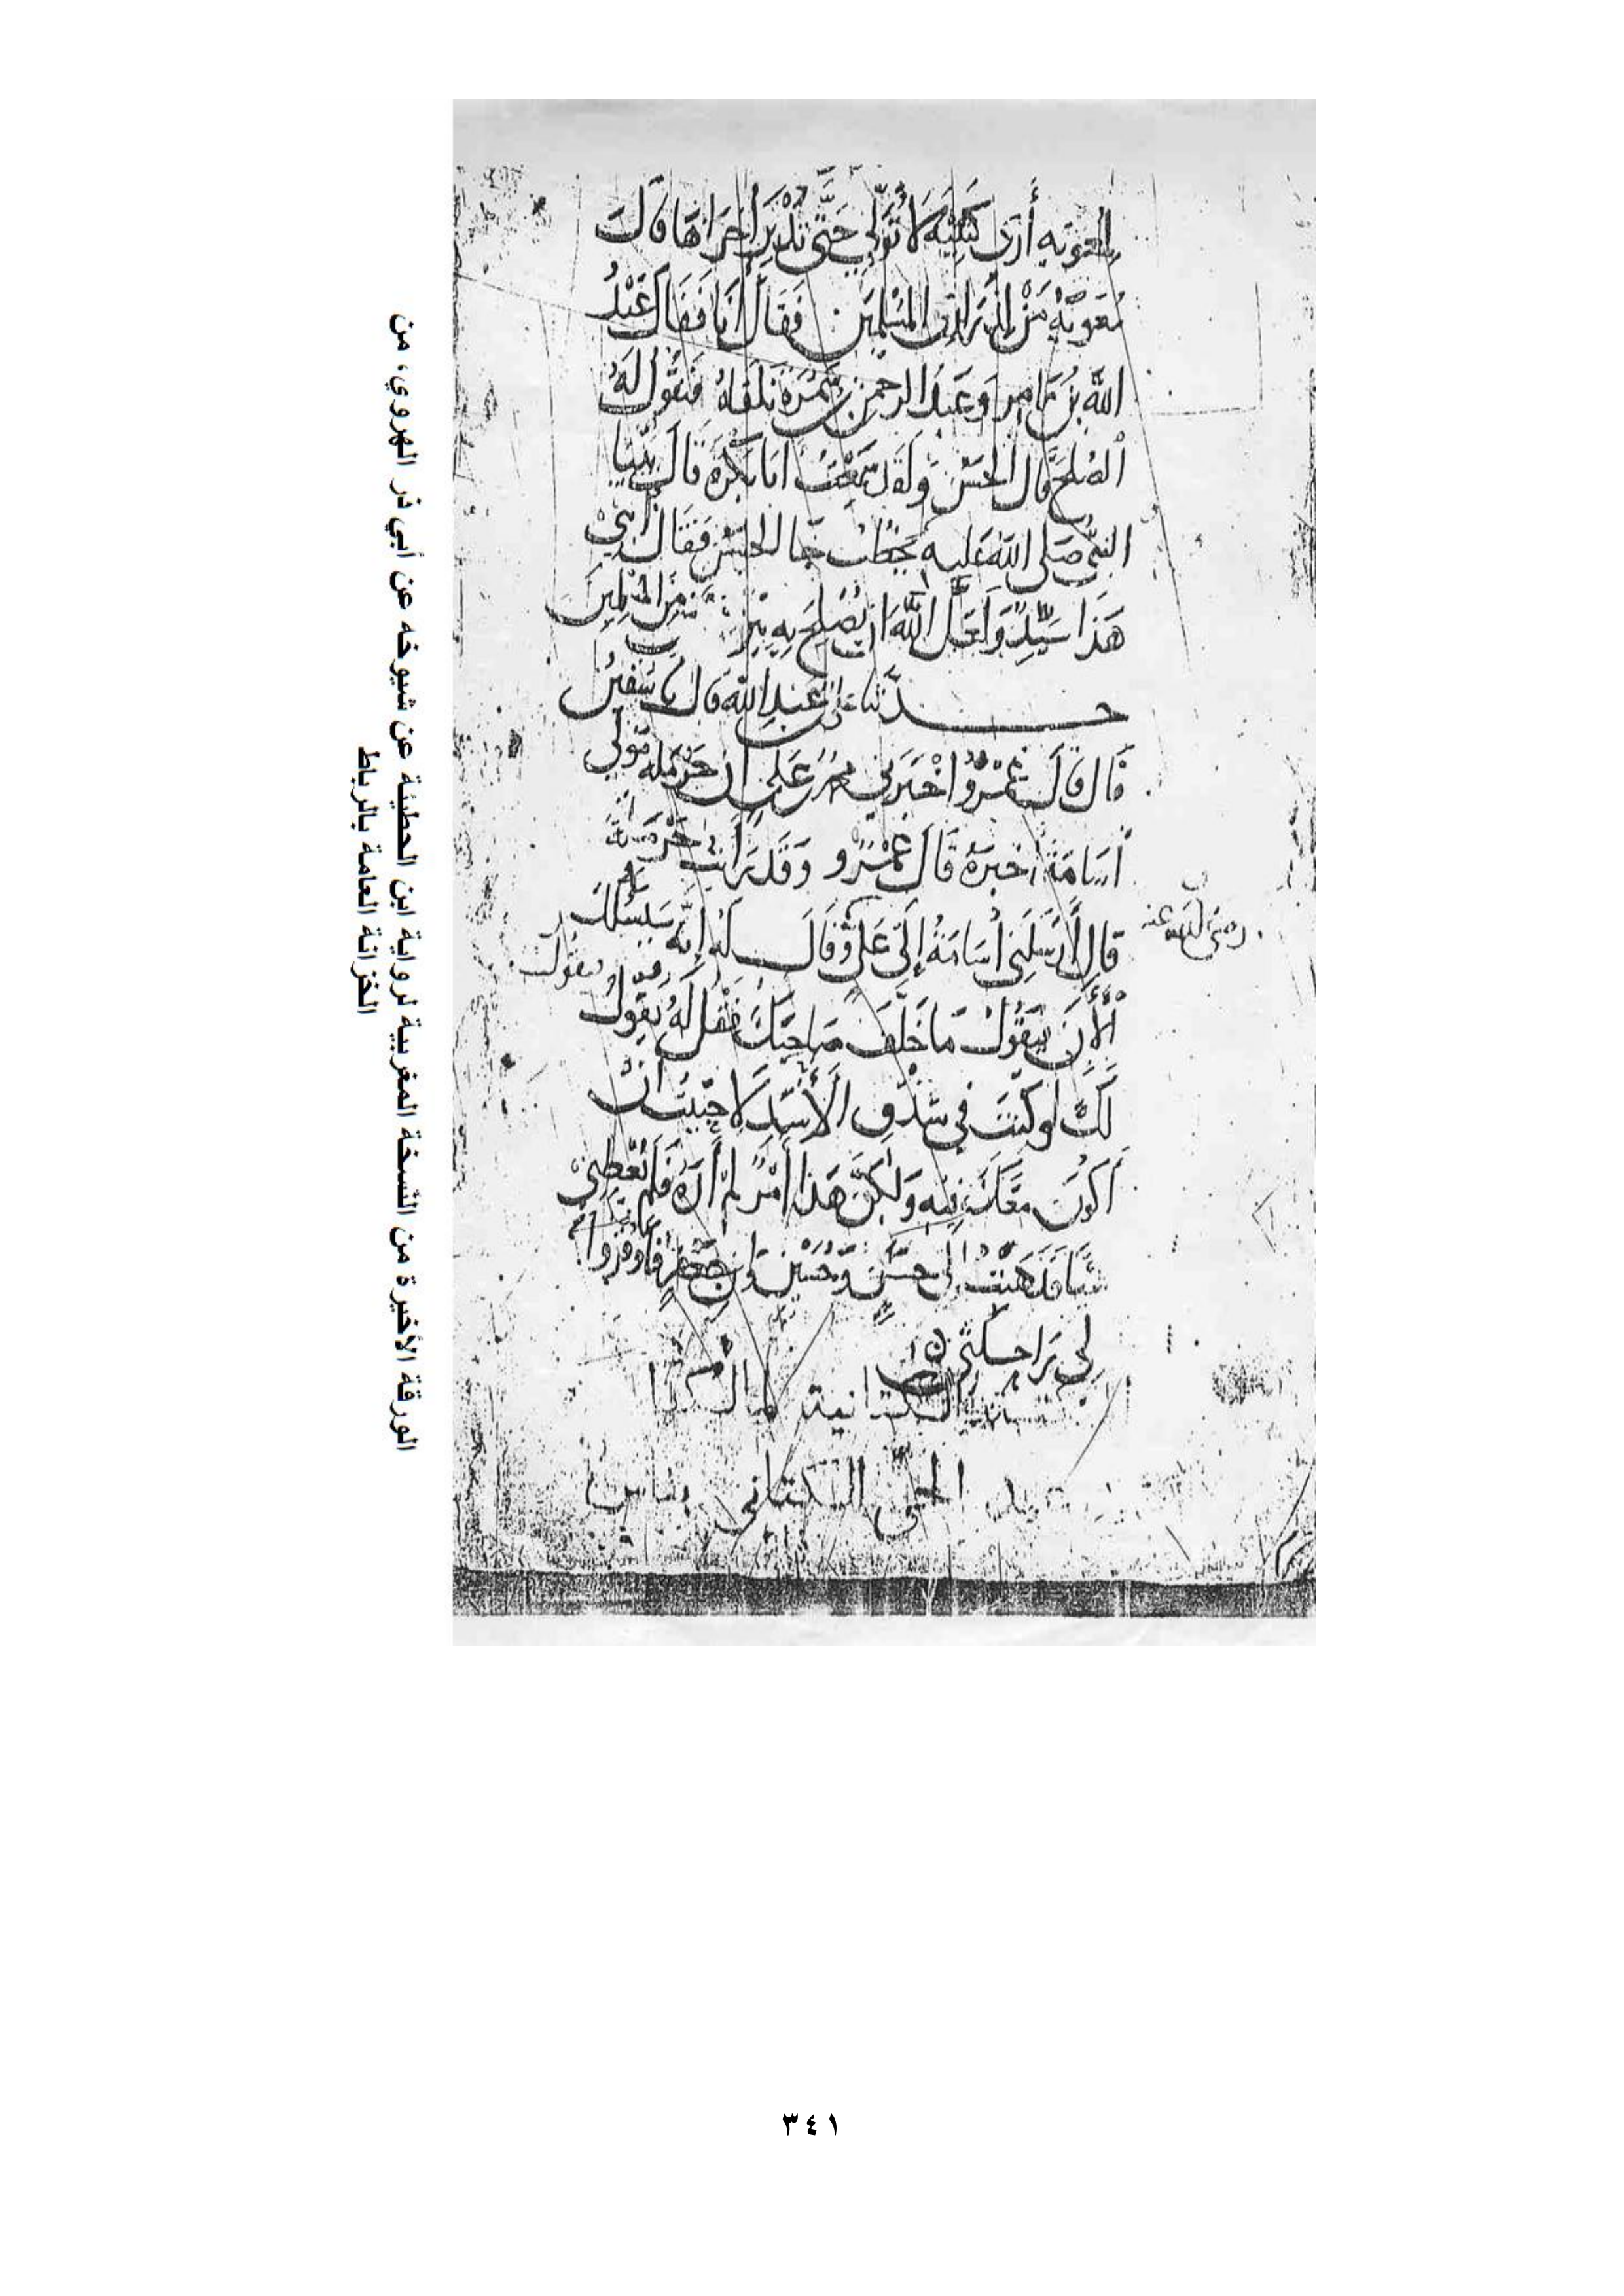 لمعوية أرى كتيبة لا تولي حتى تدبر أخراها قال
معوية من لذراري المسلمين فقال أنا فقال عبد
الله بن عامر وعبد الرحمن بن سمرة نلقاه فنقول له
الصلح قال الحسن ولقد سمعت أبا بكرة قال بينا
النبي صلى الله عليه يخطب جا الحسن فقال ابني
هذا سيد ولعل الله أن يصلح به بين من المسلمين
حدثنا علي بن عبد الله قال نا سفين
قال قال عمرو أخبرني محمد بن علي أن حرملة مولى
أسامة أخبره قال عمرو وقد رأيت حرملة
قال أرسلني أسامة إلى علي وقال له إنه سيسلك
رضي الله عنه
الأن فيقول ما خلف صاحبك فقل له يقول
لك لو كنت في شدق الأسد لأحببت أن
أكون معك فيه ولكن هذا أمر لم أره فلم يعطني
شيا فذهبت إلى حسن وحسين وابن جعفر فأوقروا
لي راحلتي
الكتانية
عبد الحي الكتاني بفاس
الورقة الأخيرة من النسخة المغربية لرواية ابن الحطيئة عن شيوخه عن أبي ذر الهروي، من
الخزانة العامة بالرباط
٣٤١